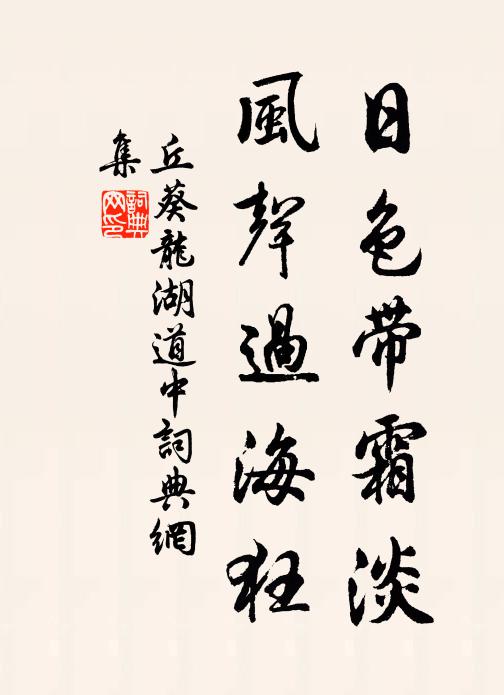 日色带霜淡
風聲過海狂
丘葵龍湖道中詞典網
集
詞典
网印